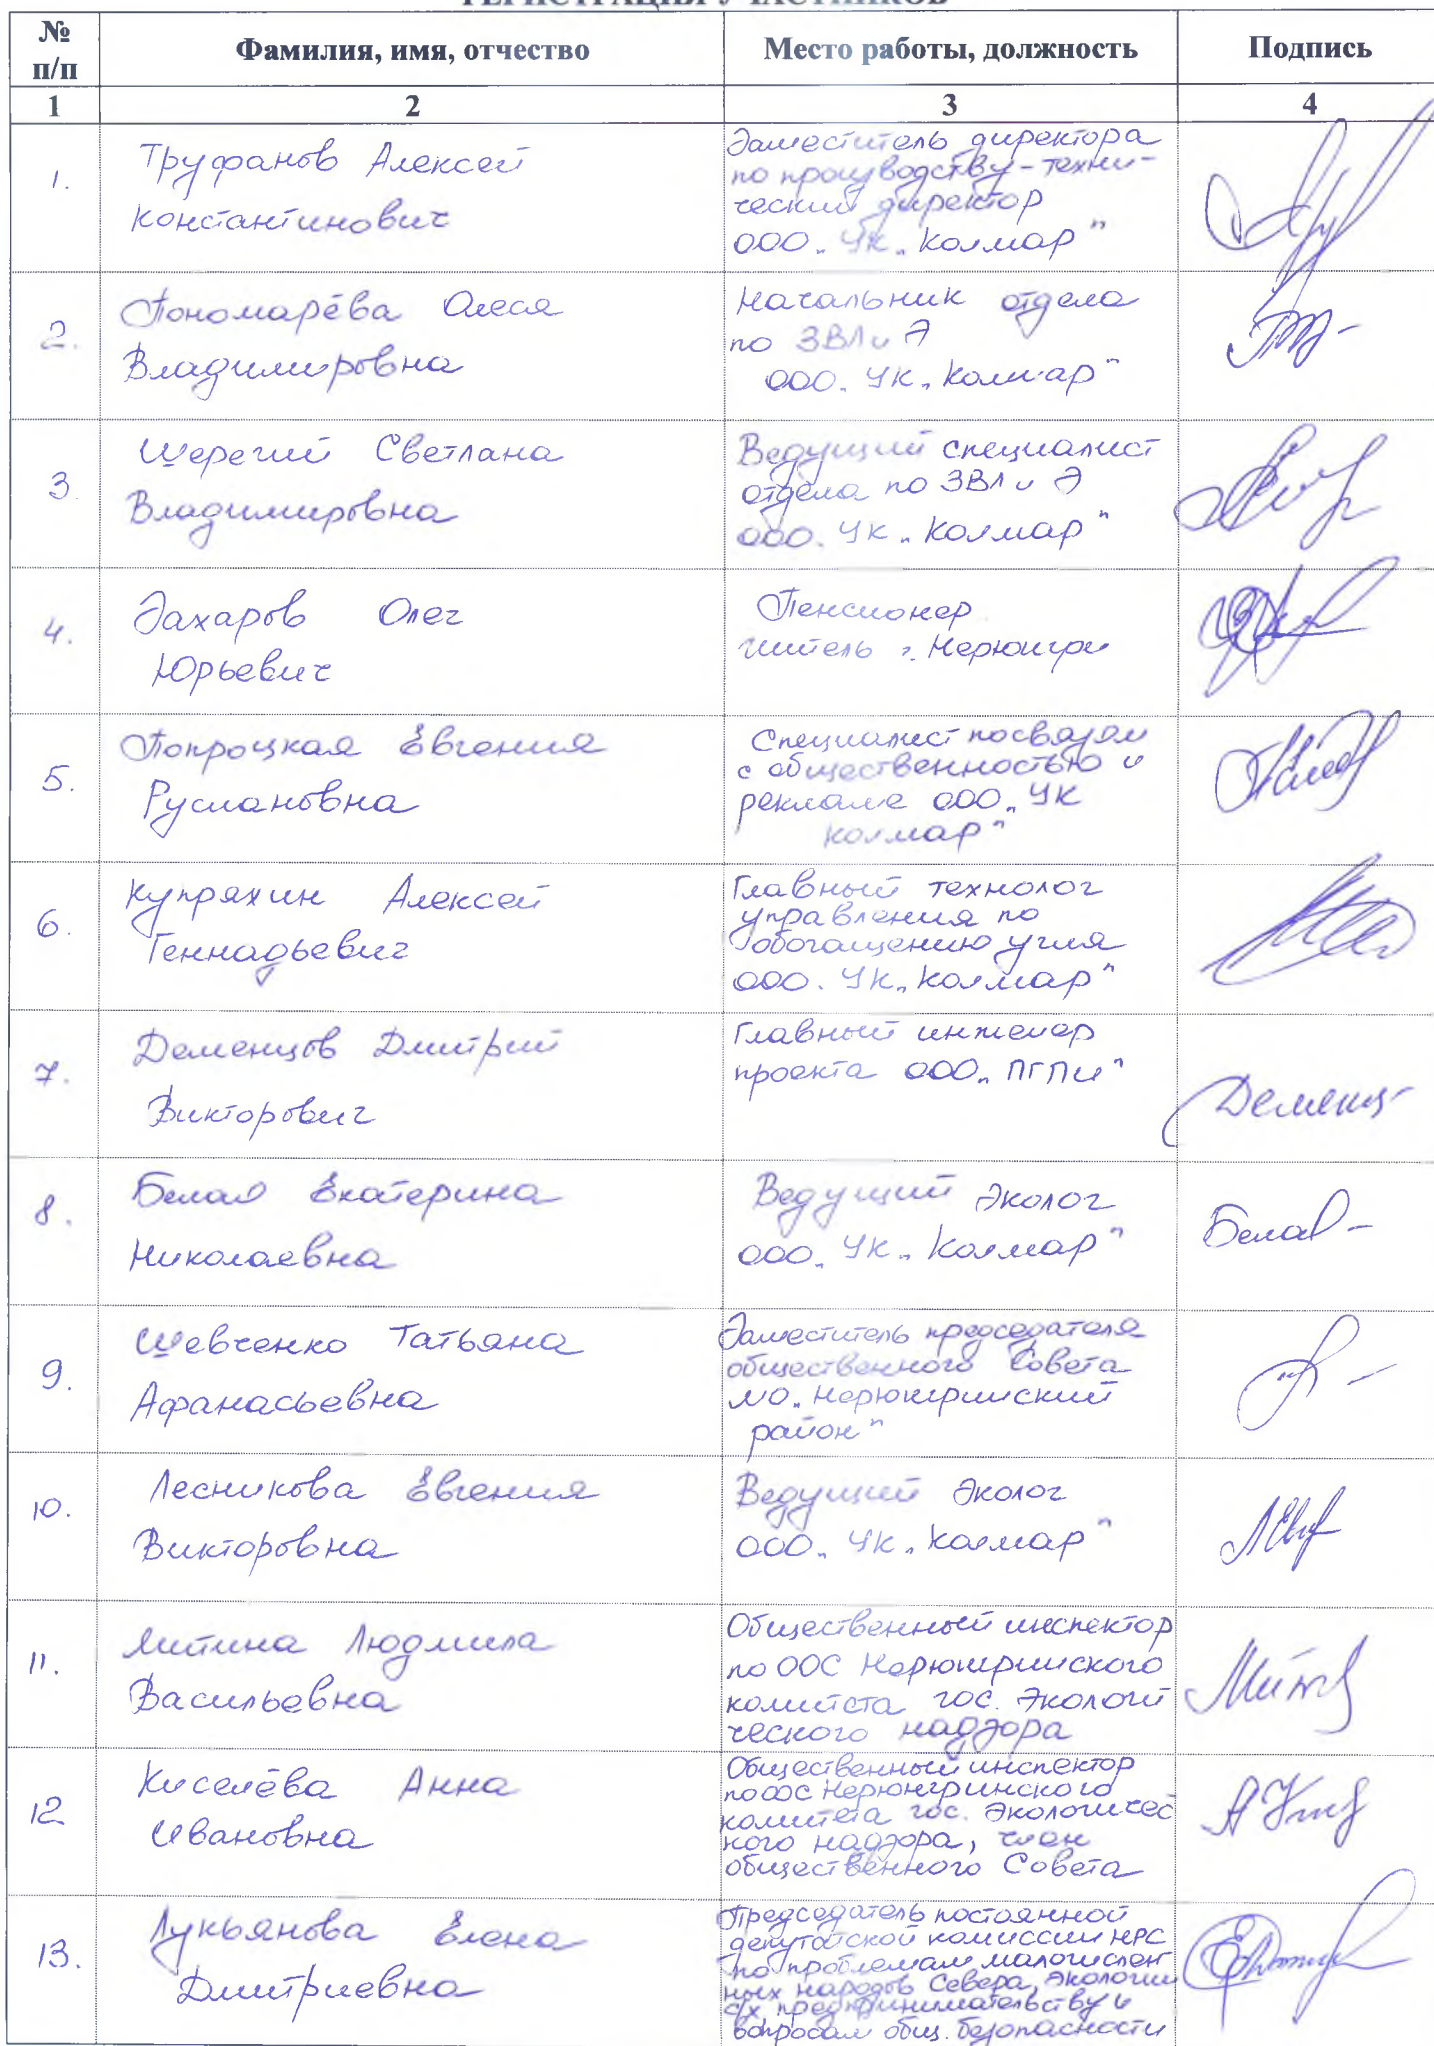 РЕГИСТРАЦИЯ УЧАСТНИКОВ
№ п/п Фамилия, имя, отчество Место работы, должность Подпись
1 2 3 4
1. Труфанов Алексей
Константинович
Заместитель директора
по производству-техни-
ческий директор
ООО "УК "Колмар"
2. Пономарёва Олеся
Владимировна
Начальник отдела
по ЗВЛ и Э
ООО "УК "Колмар"
3. Шерегий Светлана
Владимировна
Ведущий специалист
отдела по ЗВЛ и Э
ООО "УК "Колмар"
4. Захаров Олег
Юрьевич
Пенсионер
житель г. Нерюнгри
5. Попроцкая Евгения
Руслановна
Специалист по связям
с общественностью и
рекламе ООО "УК
Колмар"
6. Купряхин Алексей
Геннадьевич
Главный технолог
управления по
обогащению угля
ООО "УК "Колмар"
7. Деменцов Дмитрий
Викторович
Главный инженер
проекта ООО "ПГПИ"
Деменц
8. Белая Екатерина
Николаевна
Ведущий эколог
ООО "УК "Колмар"
Белая
9. Шевченко Татьяна
Афанасьевна
Заместитель председателя
общественного Совета
МО "Нерюнгринский
район"
10. Лесникова Евгения
Викторовна
Ведущий эколог
ООО "УК "Колмар"
11. Митина Людмила
Васильевна
Общественный инспектор
по ООС Нерюнгринского
комитета гос. Экологи
ческого надзора
12 Киселёва Анна
Ивановна
Общественный инспектор
по ООС Нерюнгринского
комитета гос. Экологичес
кого надзора, член
общественного Совета
13. Лукьянова Елена
Дмитриевна
Председатель постоянной
депутатской комиссии НРС
по проблемам малочислен
ных народов Севера, экологии
с/х предпринимательству и
вопросам общ. безопасности